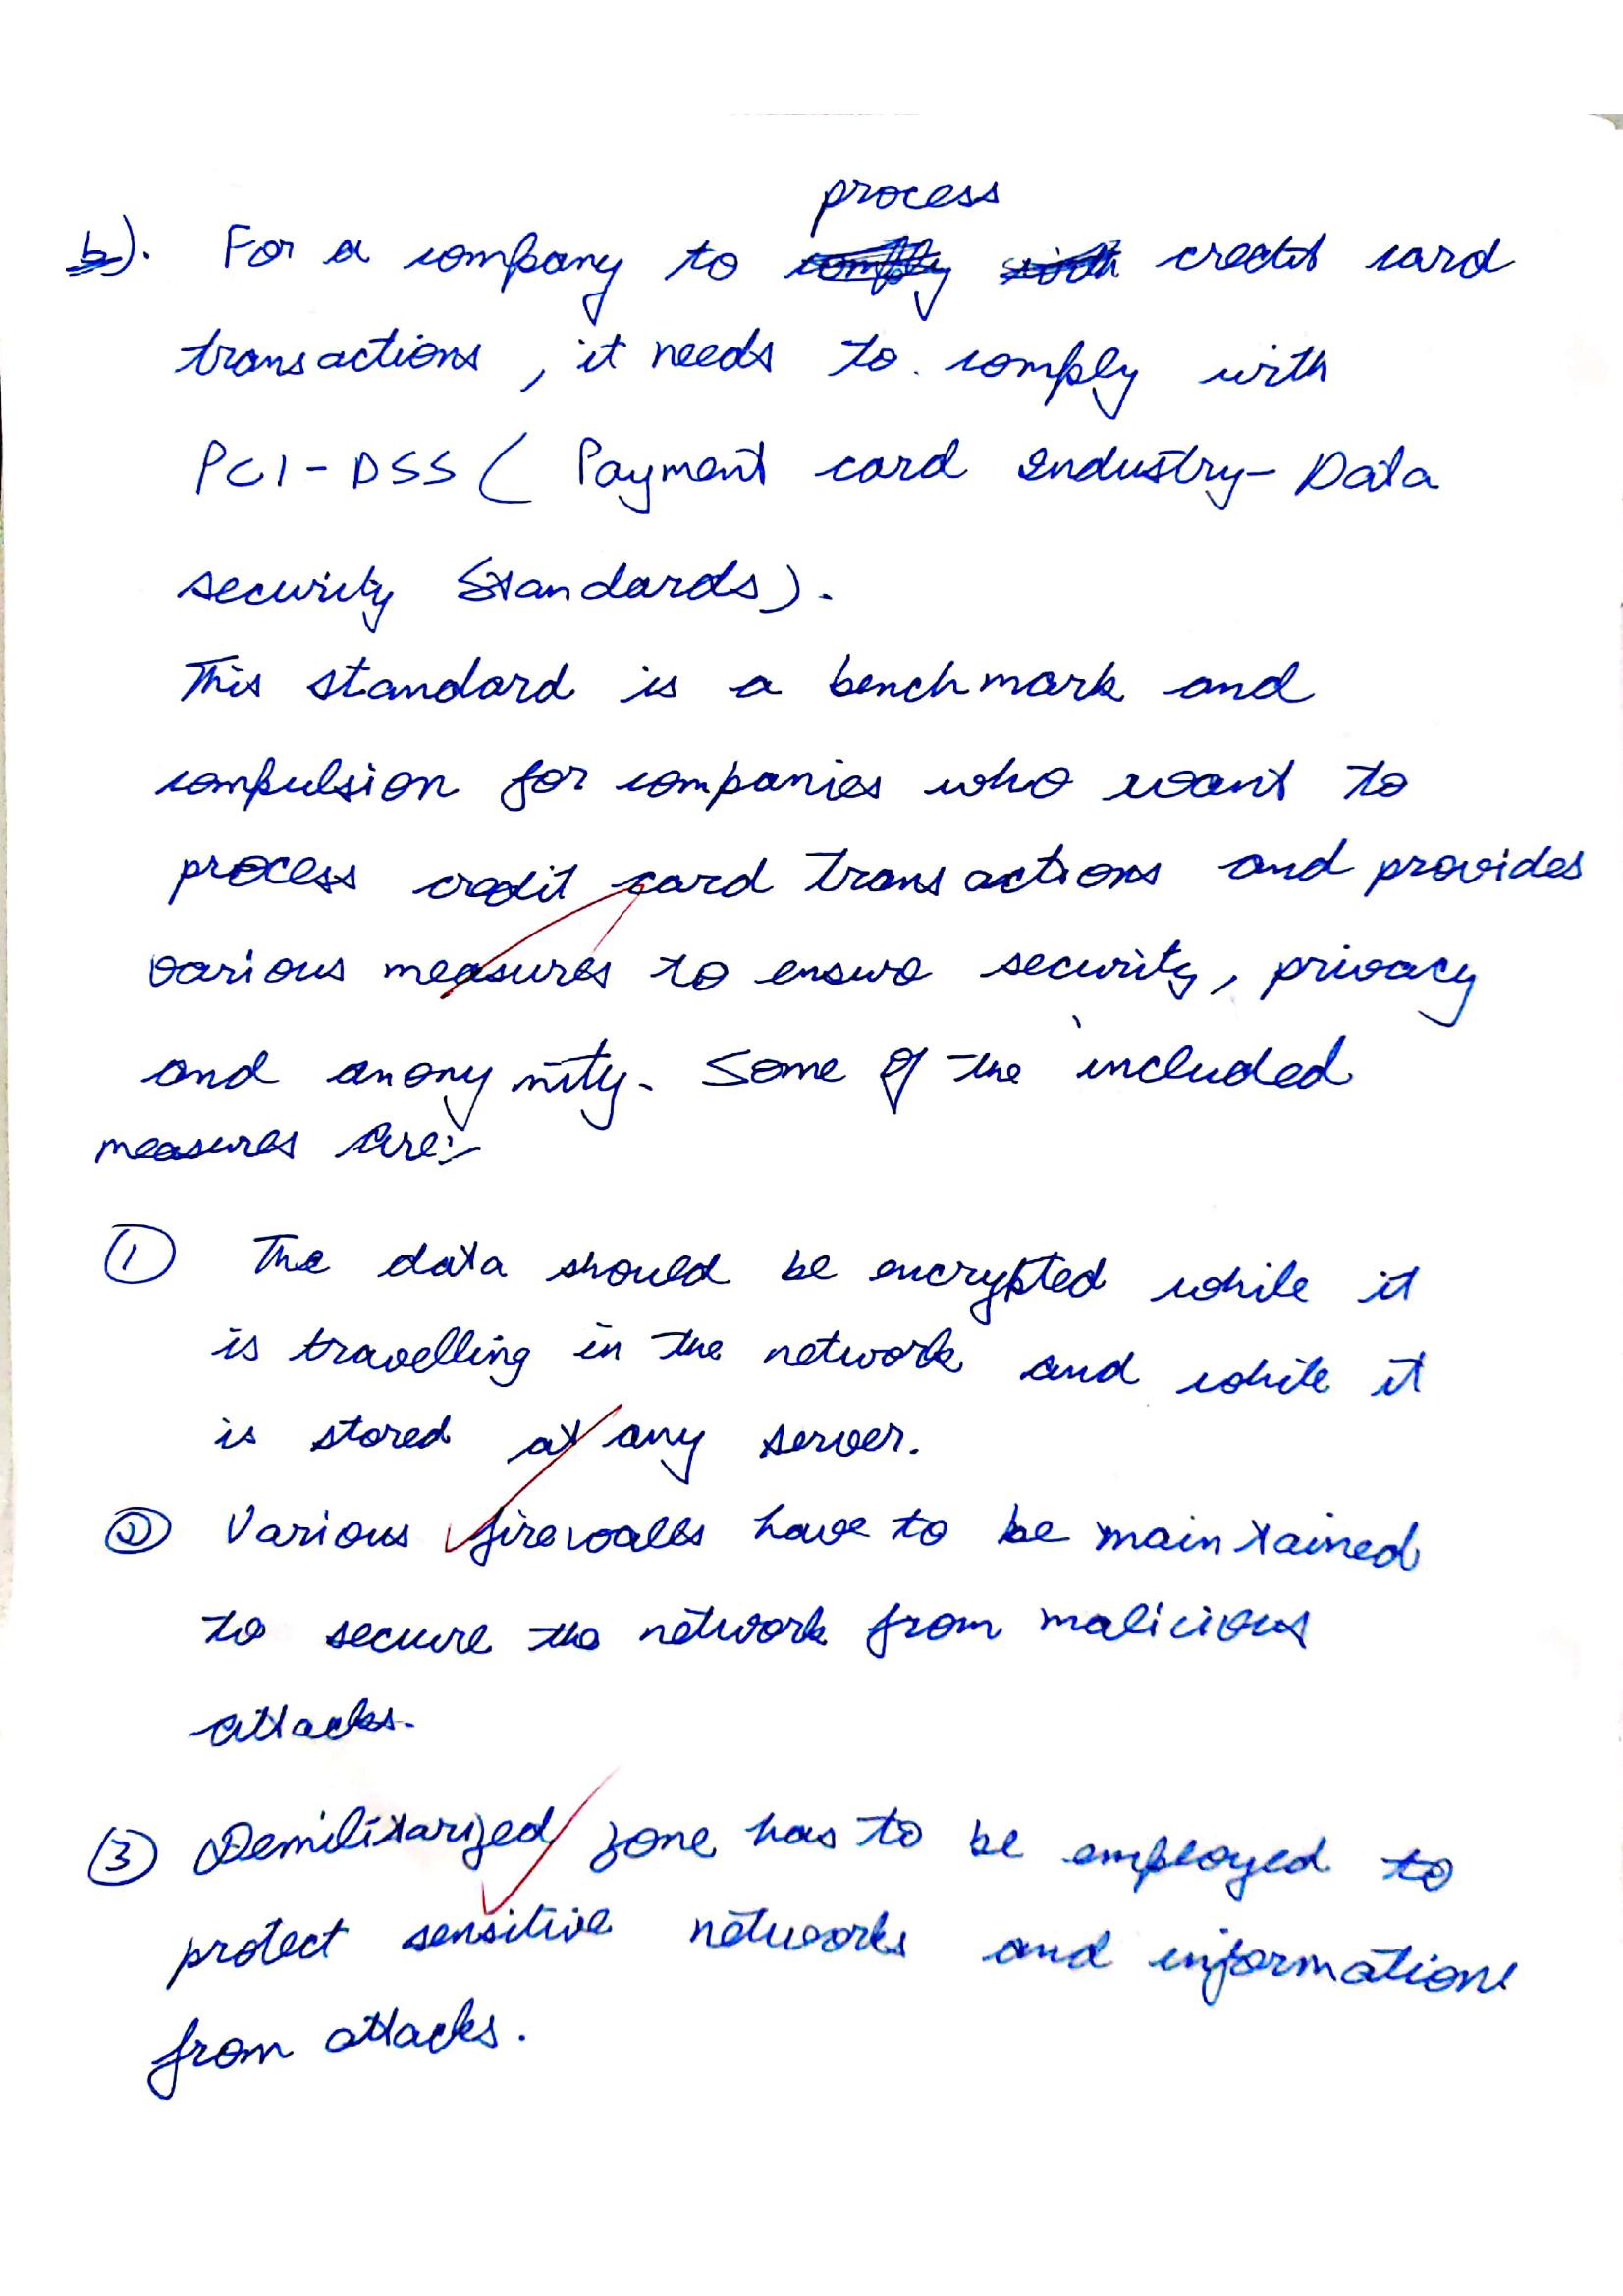 b). For a company to process credit card
transactions, it needs to comply with
PCI-DSS ( Payment card Industry- Data
security Standards).
This standard is a benchmark and
compulsion for companies who want to
process credit card transactions and provides
various measures to ensure security, privacy
and anonymity. Some of the included
measures are:-
① The data should be encrypted while it
is travelling in the network and while it
is stored at any server.
② Various firewalls have to be maintained
to secure the network from malicious
attacks.
③ Demilitarized zone has to be employed to
protect sensitive networks and informations
from attacks.